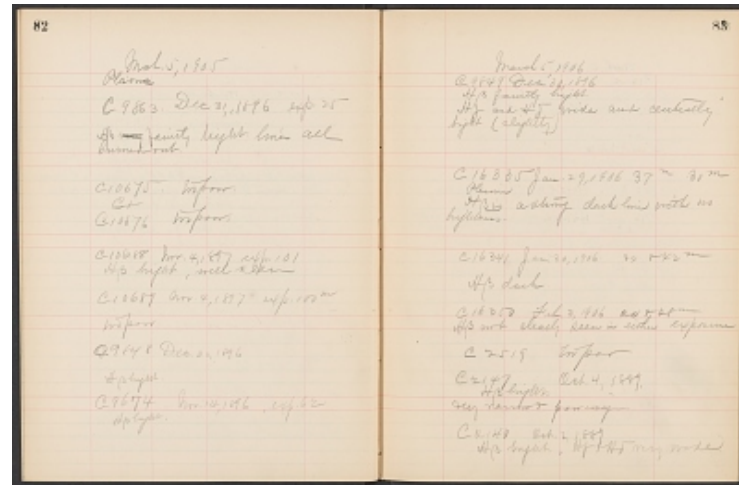 82
Mch. 5, 1905
Pleione
C 9863 Dec 21, 1896 exp 25
Hβ faintly bright lines all
burned out
C10675 too poor
Cor
C10676 too poor
C10688 Nov. 4, 1897 exp. 101
Hβ bright, well
C10689 Nov 4, 1897 exp. 100 m
too poor
C9848 Dec. 21, 1896
Hβ bright
C9674 Nov. 14, 1896, exp 62
Hβ bright.
83
March 5, 1906
C 9849 Dec 21, 1896
Hβ faintly bright
Hγ and Hδ wide and centrally
bright (slightly)
C 16335 Jan. 29, 1906 37 m 30 m
Pleione
Hβ is a strong dark line with no
brightness.
C16341 Jan 30, 1906
Hβ dark
C16350 Feb 2, 1906
Hβ not clearly seen in either exposure
C 2519 too poor
C 2147 Oct. 4, 1889.
Hβ bright
very narrow
C 2148 Oct. 2, 1889
Hβ bright, Hγ + Hδ